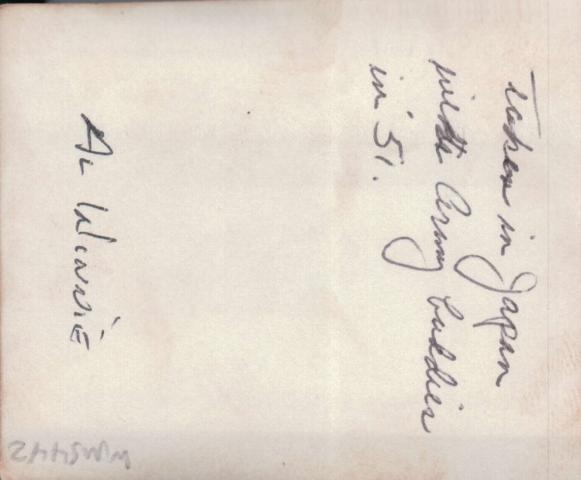 Taken in Japan
with Army buddies
in '51.
Al Winnie